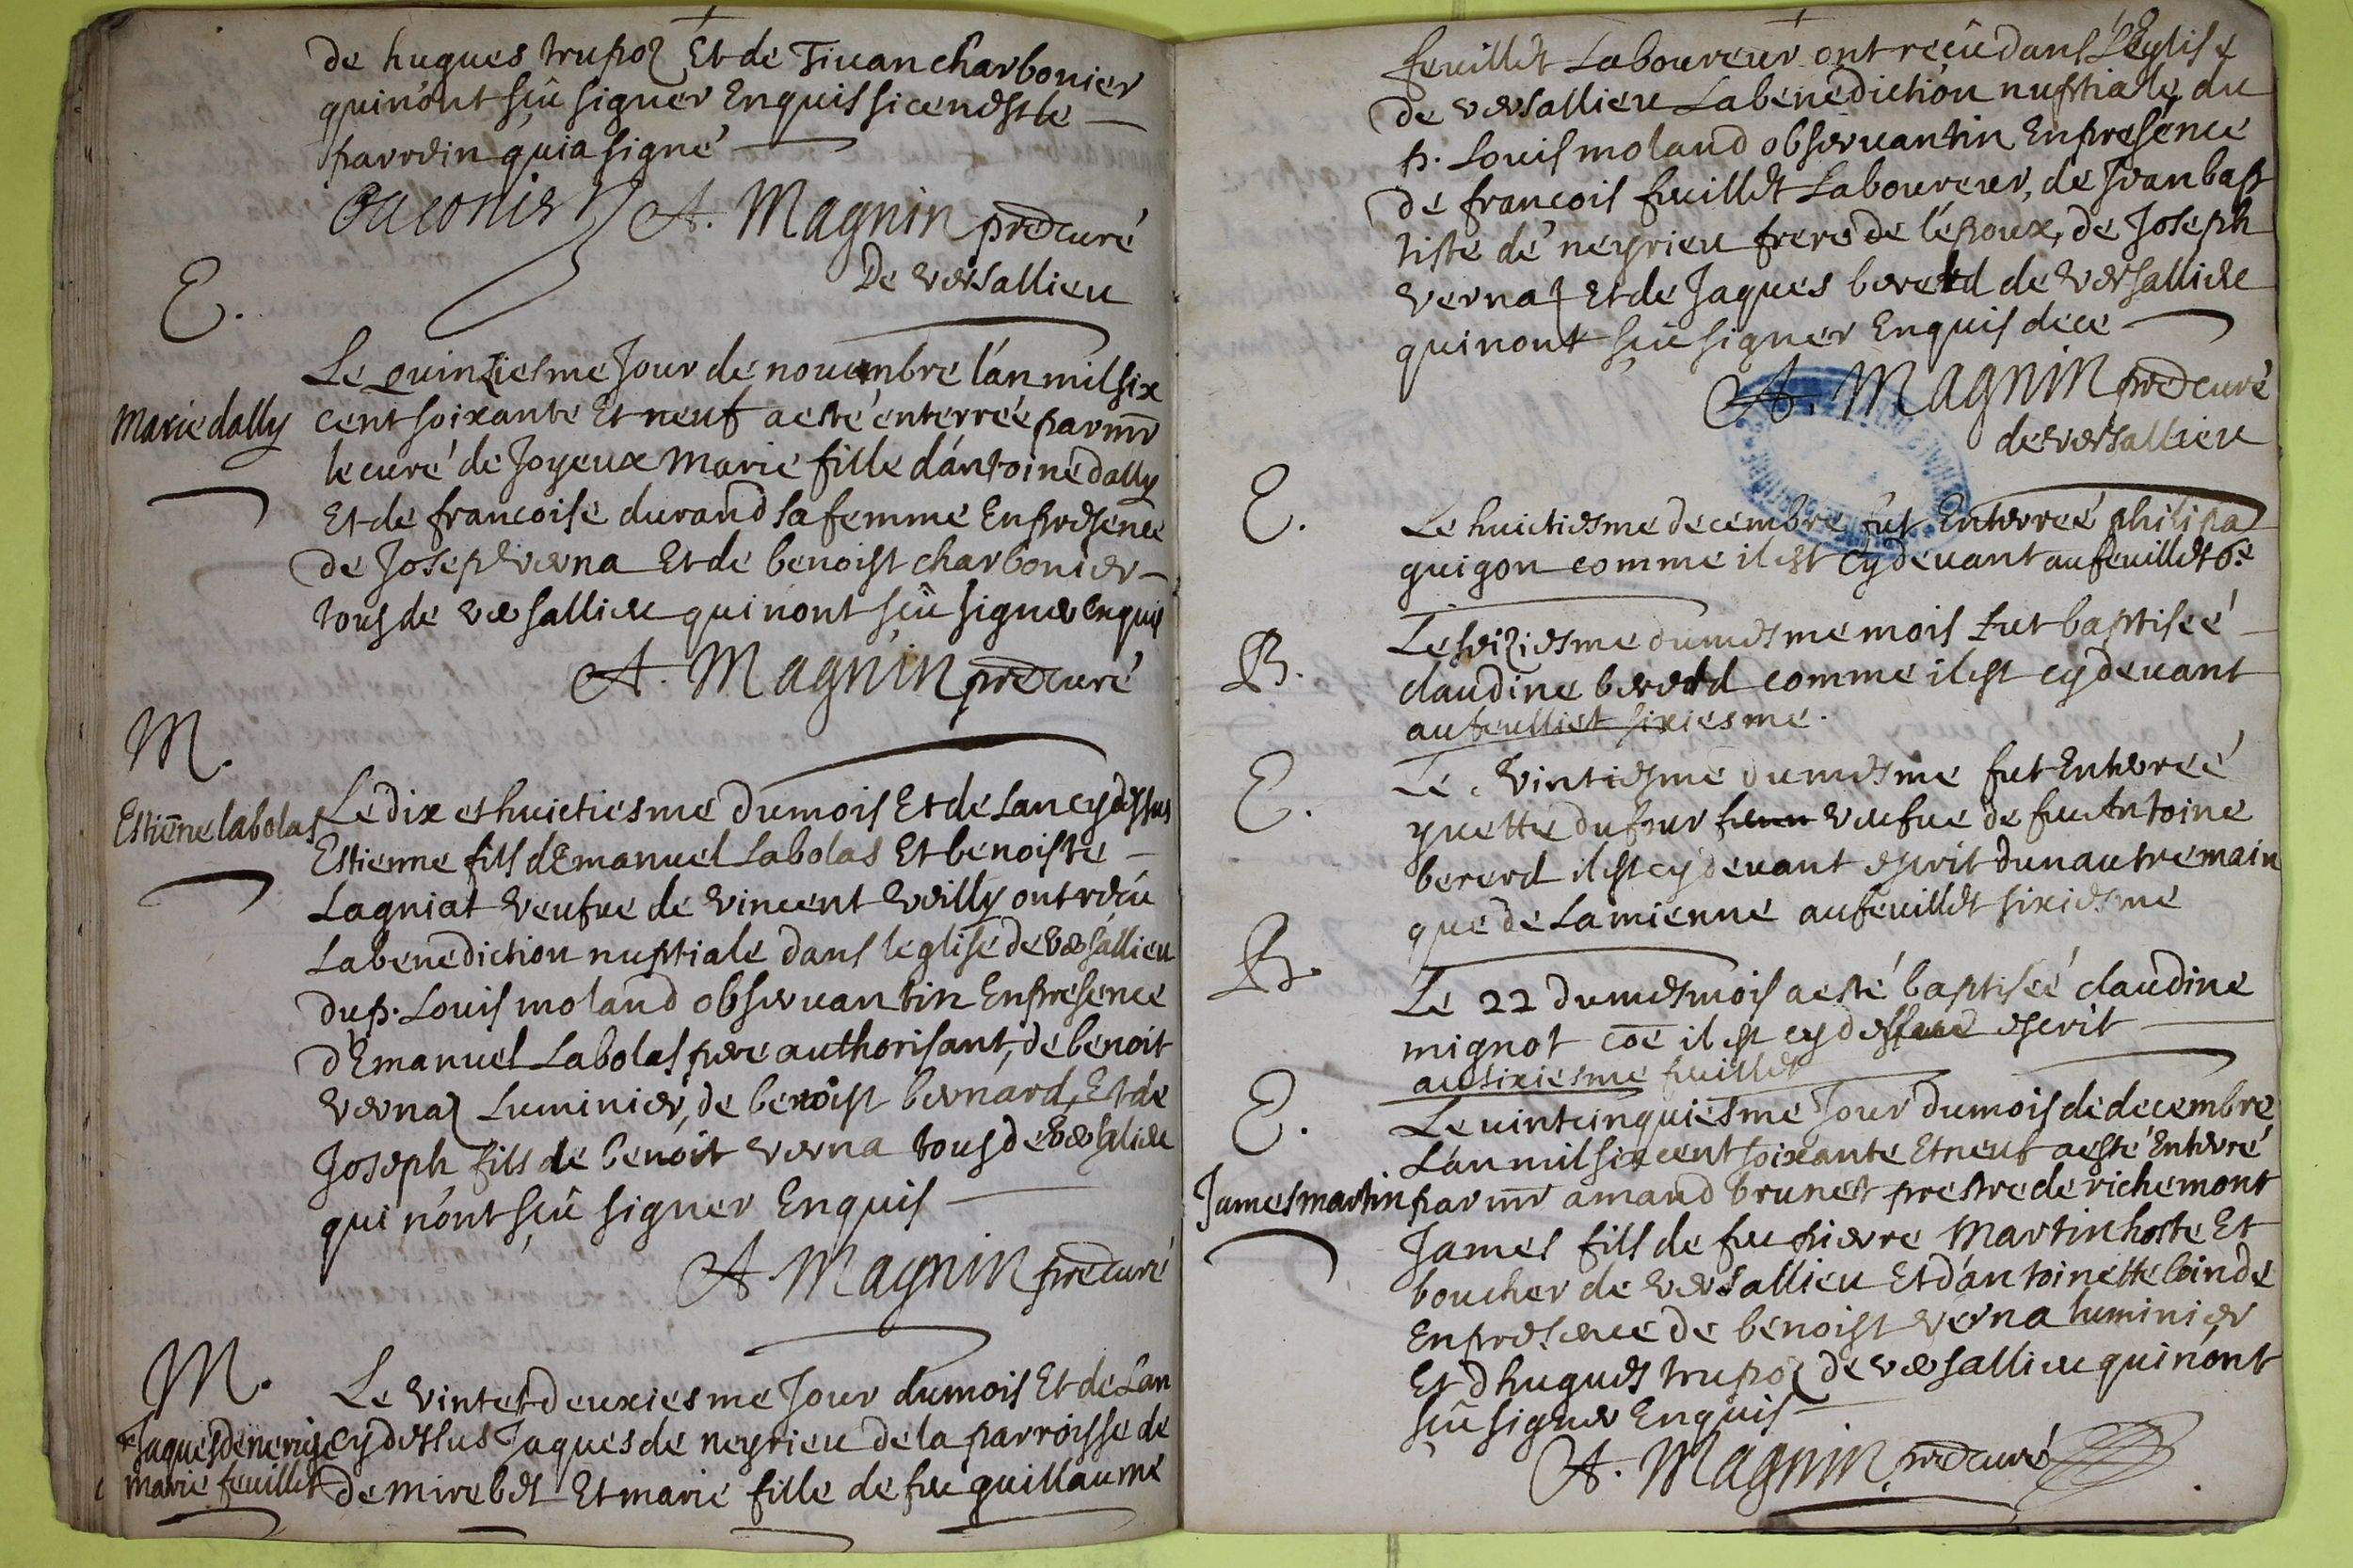 de hugues trupoz Et de Jivan charbonier
quinont sçû signer Enquis si ce nest le
parrein qui a signé
A. Magnin prêcuré
De versallieu
E.
Le quinziesme Jour de nouembre l'an mil six
Marie dally
cent soixante Et neuf a esté enterrée par mr
le curé de Joyeux Marie fille d'antoine dally
Et de francoise durand sa femme En presence
de Joseph verna Et de benoist charbonier
tous de versallieu qui nont sçû signer enquis
A. Magnin prêcuré
M.
Le dix et huictiesme du mois Et de Lan cy dessus
Estiene labolas
Estienne fils dEmanuel Labolas Et benoiste
Lagniat veufue de vincent veilly ont reçu
La benediction nuptiale dans leglise de versallieu
du p. Louis moland obseruantin En presence
d'Emanuel Labolas pere authorisant, de benoit
vernaz Luminier, de benoist bernard, Et de
Joseph fils de benoit verna tous de versalieu
qui nont sçû signer Enquis
A. Magnin prêcuré
M.
Le vint et deuxiesme Jour du mois Et de Lan
Jaques de
cy dessus Jaques de neyrieu de la parroisse de
marie feuillet
de mirebet Et marie fille de feu guillaume
feuillet Laboureur ont reçû dans l'Eglise
de versallieu La benediction nuptiale du
p. Louis moland obseruantin En presence
de francois feuillet Laboureur, de Jean bap
tiste de neyrieu frere de l'époux, de Joseph
vernaz Et de Jaques bererd de versallieu
qui nont sçû signer Enquis de ce
A. Magnin prêcuré
de versallieu
E.
Le huictiesme decembre fut Enterreé philipa
guigon comme il est cy deuant au feuillet 6e
B.
Le seiziesme du mesme mois fut baptiseé
claudine bererd comme il est cy deuant
au feulliet sixiesme.
E.
Le vintiesme du mesme fut Enterreé
yuette dufour veufue de feu Antoine
bererd il est cy deuant escrit dun autre main
que de La mienne au feuillet sixiesme
B.
Le 22 du mesmois a esté baptiseé claudine
mignot cõe il est cy dessus escrit
au sixiesme feuillet
E.
Le vintcinquiesme Jour du mois de decembre
Lan mil six cent soixante Et neuf a esté Enterré
James martin
par mr amand brunet prestre de richemont
James fils de feu pierre Martin hoste Et
boucher de versallieu Et d'antoinette loinde
En presence de benoist verna luminier
Et d'hugues trupoz de versallieu qui nont
sçû signer Enquis
A. Magnin prêcuré